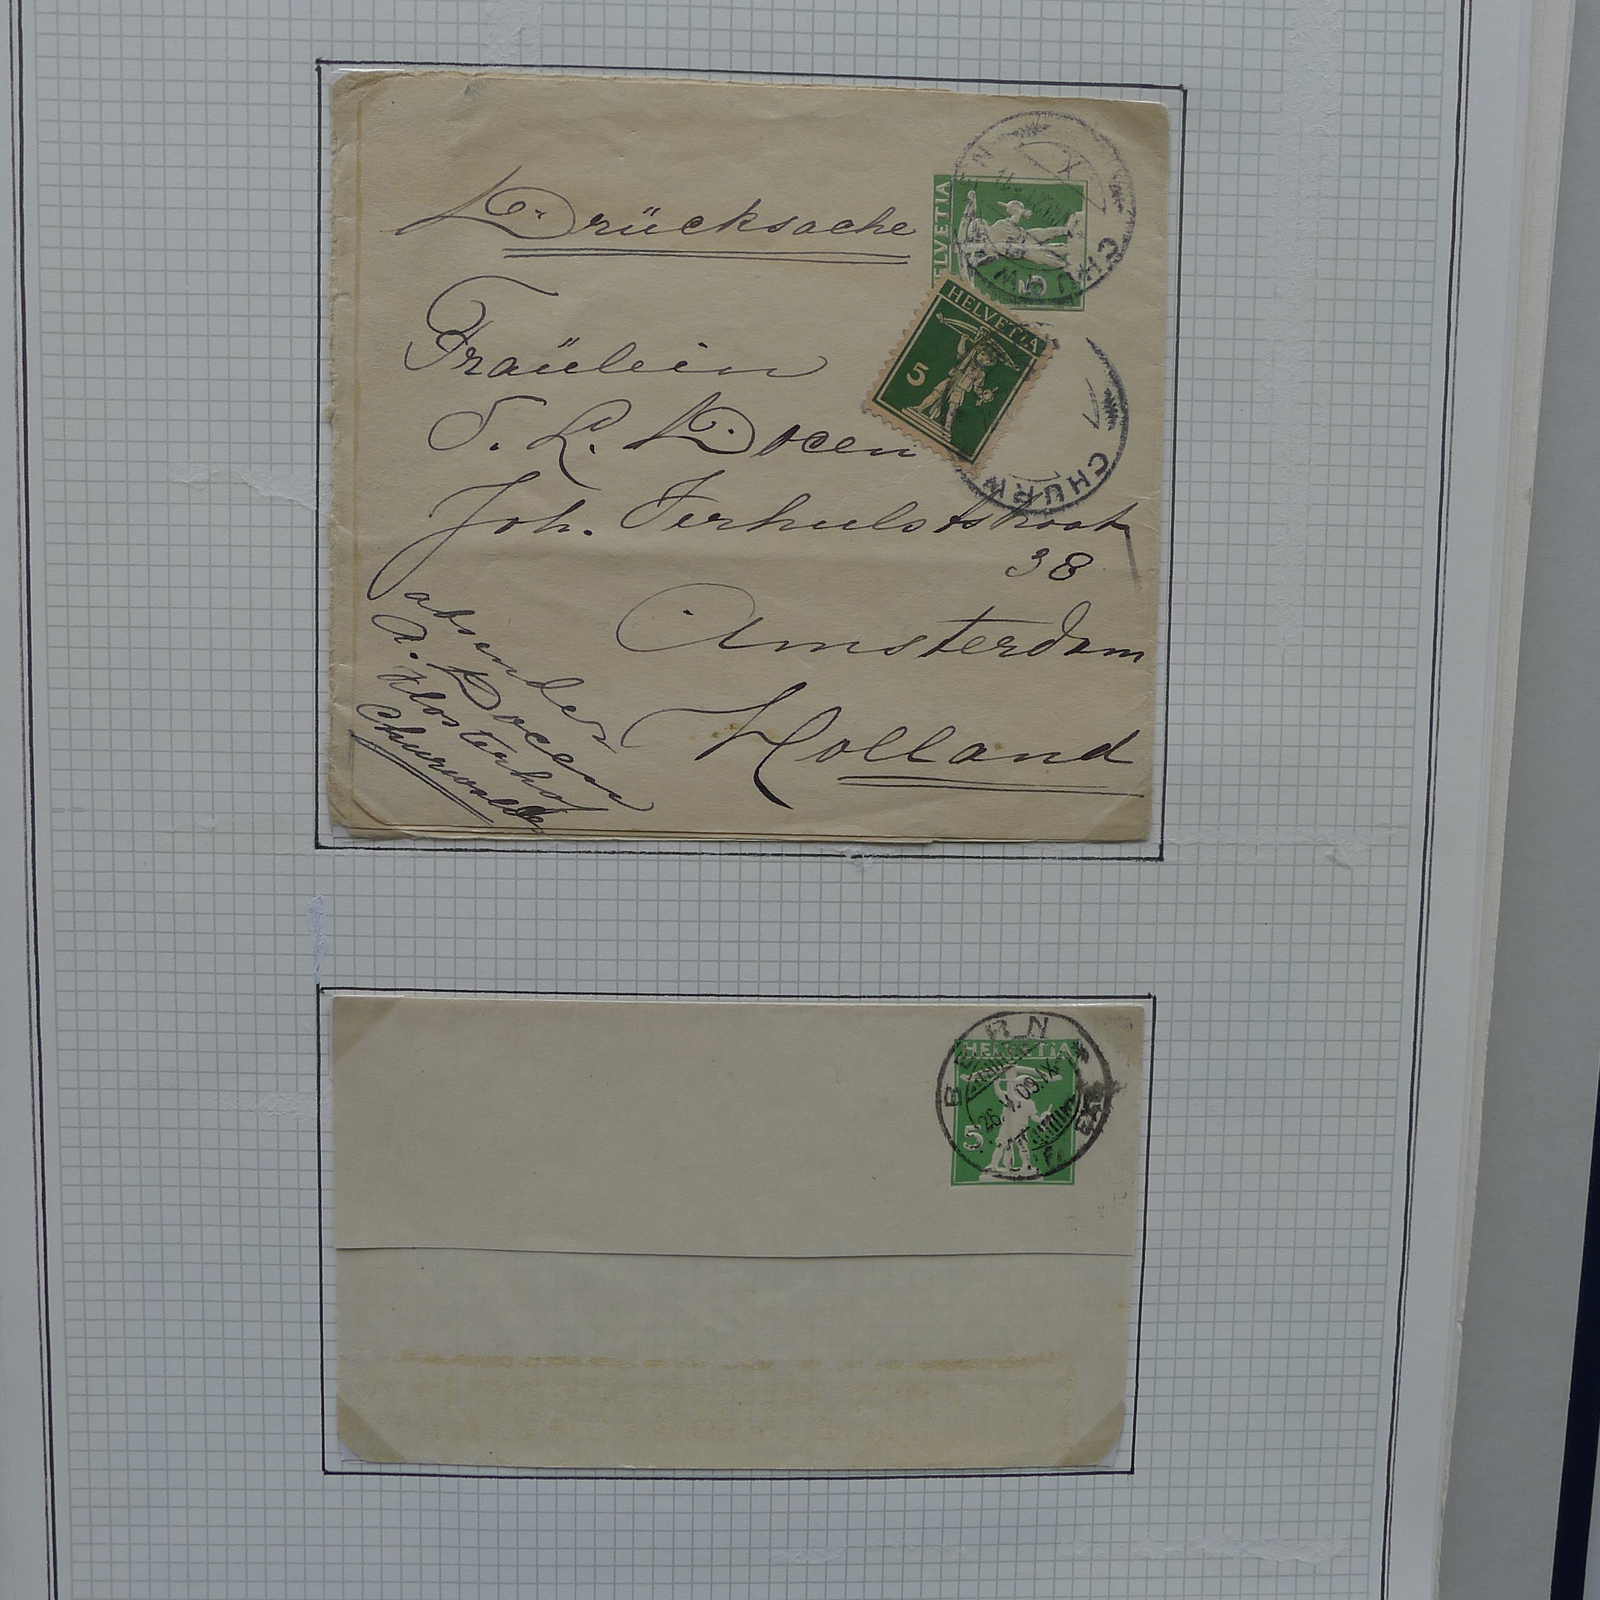 Drücksache
HELVETIA
Fräulein
HELVETIA
5
CHURW
Docen
Joh. Verhulststraat
38
Amsterdam
Holland
absender
A. Docen
Klosterhof
Churwalde
BERN
HELVETIA
26.V.09.IX
5